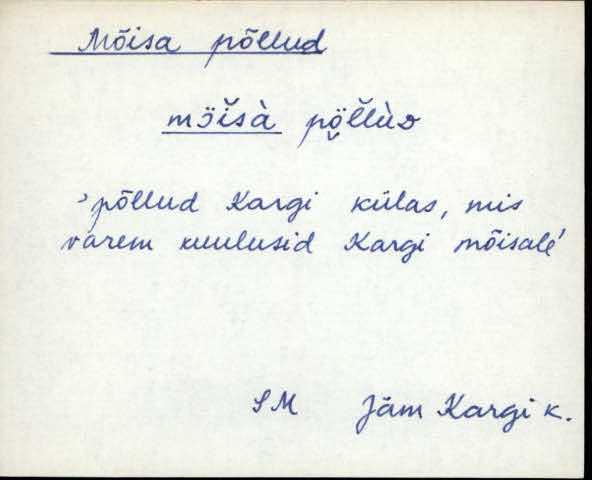 Mõisa põllud
mɔ̈ĭsà pö̬l̆lùᴅ
'põllud Kargi külas, mis
varem kuulusid Kargi mõisale'
SM Jäm Kargi k.